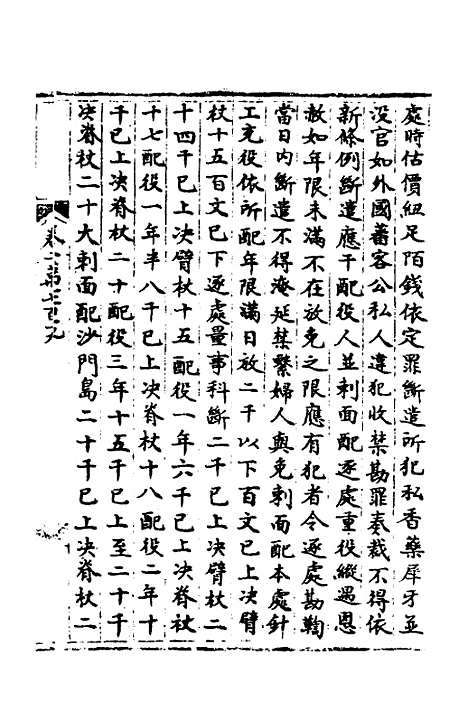 處時估價紐足陌錢依定罪斷遣所犯私香藥犀牙並
没官如外國蕃客公私人違犯收禁勘罪奏裁不得依
新條例斷遣應干配役人並刺面配逐處重役縱遇恩
赦如年限未滿不在放免之限應有犯者令逐處勘鞫
當日内斷遣不得淹延禁繫婦人與免刺面配本處針
工充役依所配年限滿日放二千以下百文已上決臂
杖十五百文已下逐處量事科斷二千已上決臂杖二
十四千已上決臂杖十五配役一年六千已上決脊杖
十七配役一年半八千已上決脊杖十八配役二年十
千已上決脊杖二十配役三年十五千已上至二十千
決脊杖二十大刺面配沙門島二十千已上決脊杖二